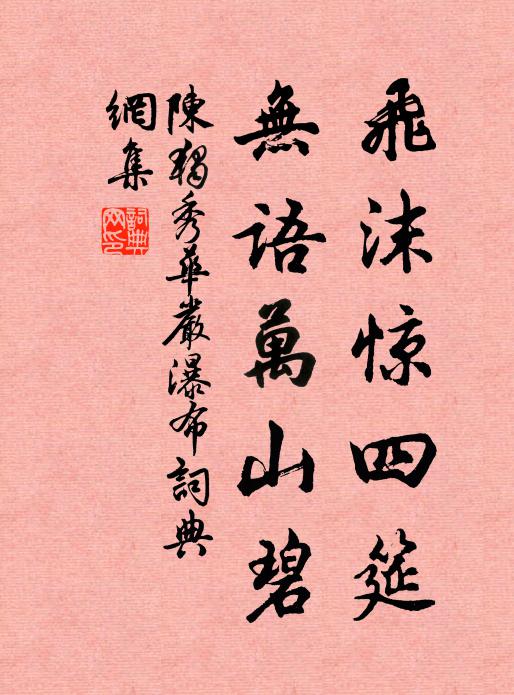 飛沫惊四筵
無語萬山碧
陳獨秀華嚴瀑布詞典
網集
詞典
网印